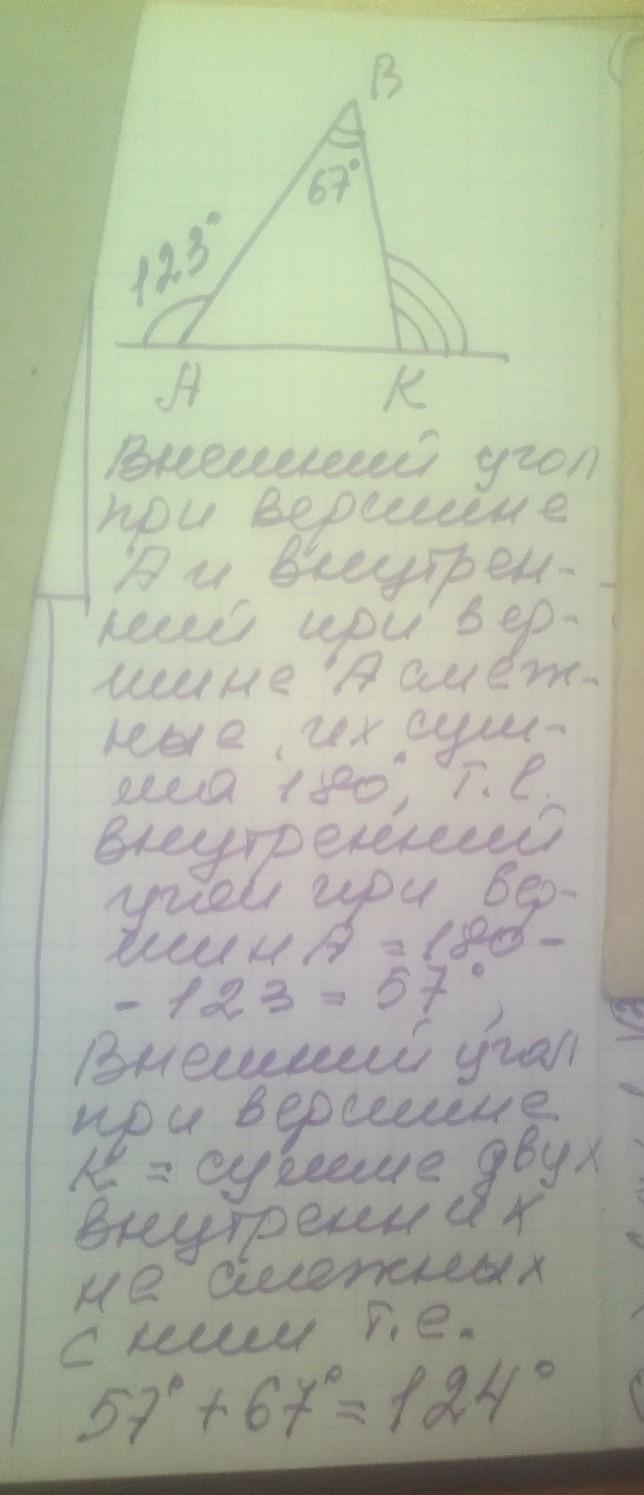 B
67°
123°
A K
Внешний угол
при вершине
А и внутрен-
ний при вер-
шине А смеж-
ные, их сум-
ма 180°, т.е.
внутренний
угол при вер-
шин А = 180 -
- 123 = 57°,
Внешний угол
при вершине
К = сумме двух
внутренних
не смежных
с ним т.е.
57° + 67° = 124°